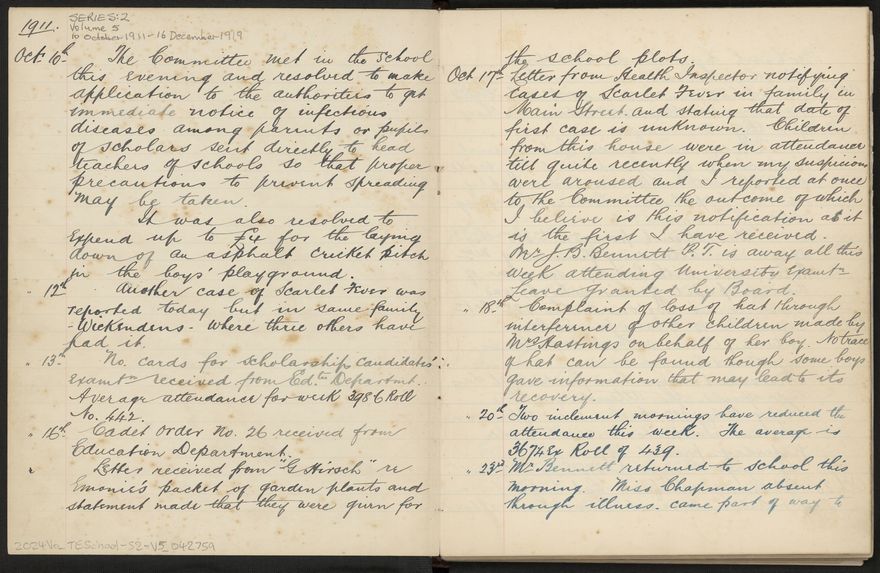 1911.
SERIES: 2
Volume 5
10 October 1911 - 16 December 1919
Oct 10th The Committee met in the School
this evening and resolved to make
application to the authorities to get
immediate notice of infectious
diseases among parents or pupils
of scholars sent directly to head
teachers of schools so that proper
precautions to prevent spreading
may be taken.
It was also resolved to
expend up to £4 for the laying
down of an asphalt cricket pitch
in the boys' playground.
" 12th Another case of Scarlet Fever was
reported today but in same family
- Wickendens - where three others have
had it.
" 13th No cards for scholarship candidates'
examtn received from Edtn Departmt.
Average attendance for week 398.6 Roll
No. 442.
" 16th Cadet Order No. 26 received from
Education Department.
" Letter received from "G Hirsch" re
packet of garden plants and
statement made that they were given for
the school plots.
Oct 17th Letter from Health Inspector notifying
cases of Scarlet Fever in family in
Main Street and stating that date of
first case is unknown. Children
from this house were in attendance
till quite recently when my suspicions
were aroused and I reported at once
to the Committee the outcome of which
I believe is this notification as it
is the first I have received.
Mr J. B. Bennett P.T. is away all this
week attending University Examtn
Leave granted by Board.
" 18th Complaint of loss of hat through
interference of other children made by
Mrs Hastings on behalf of her boy. No trace
of hat can be found though some boys
gave information that may lead to its
recovery.
" 20th Two inclement mornings have reduced the
attendance this week. The average is
367.4 Ex Roll of 439.
" 23rd Mr Bennett returned to school this
morning. Miss Chapman absent
through illness. came part of way to
2024Va_TESchool-S2-V5_042759